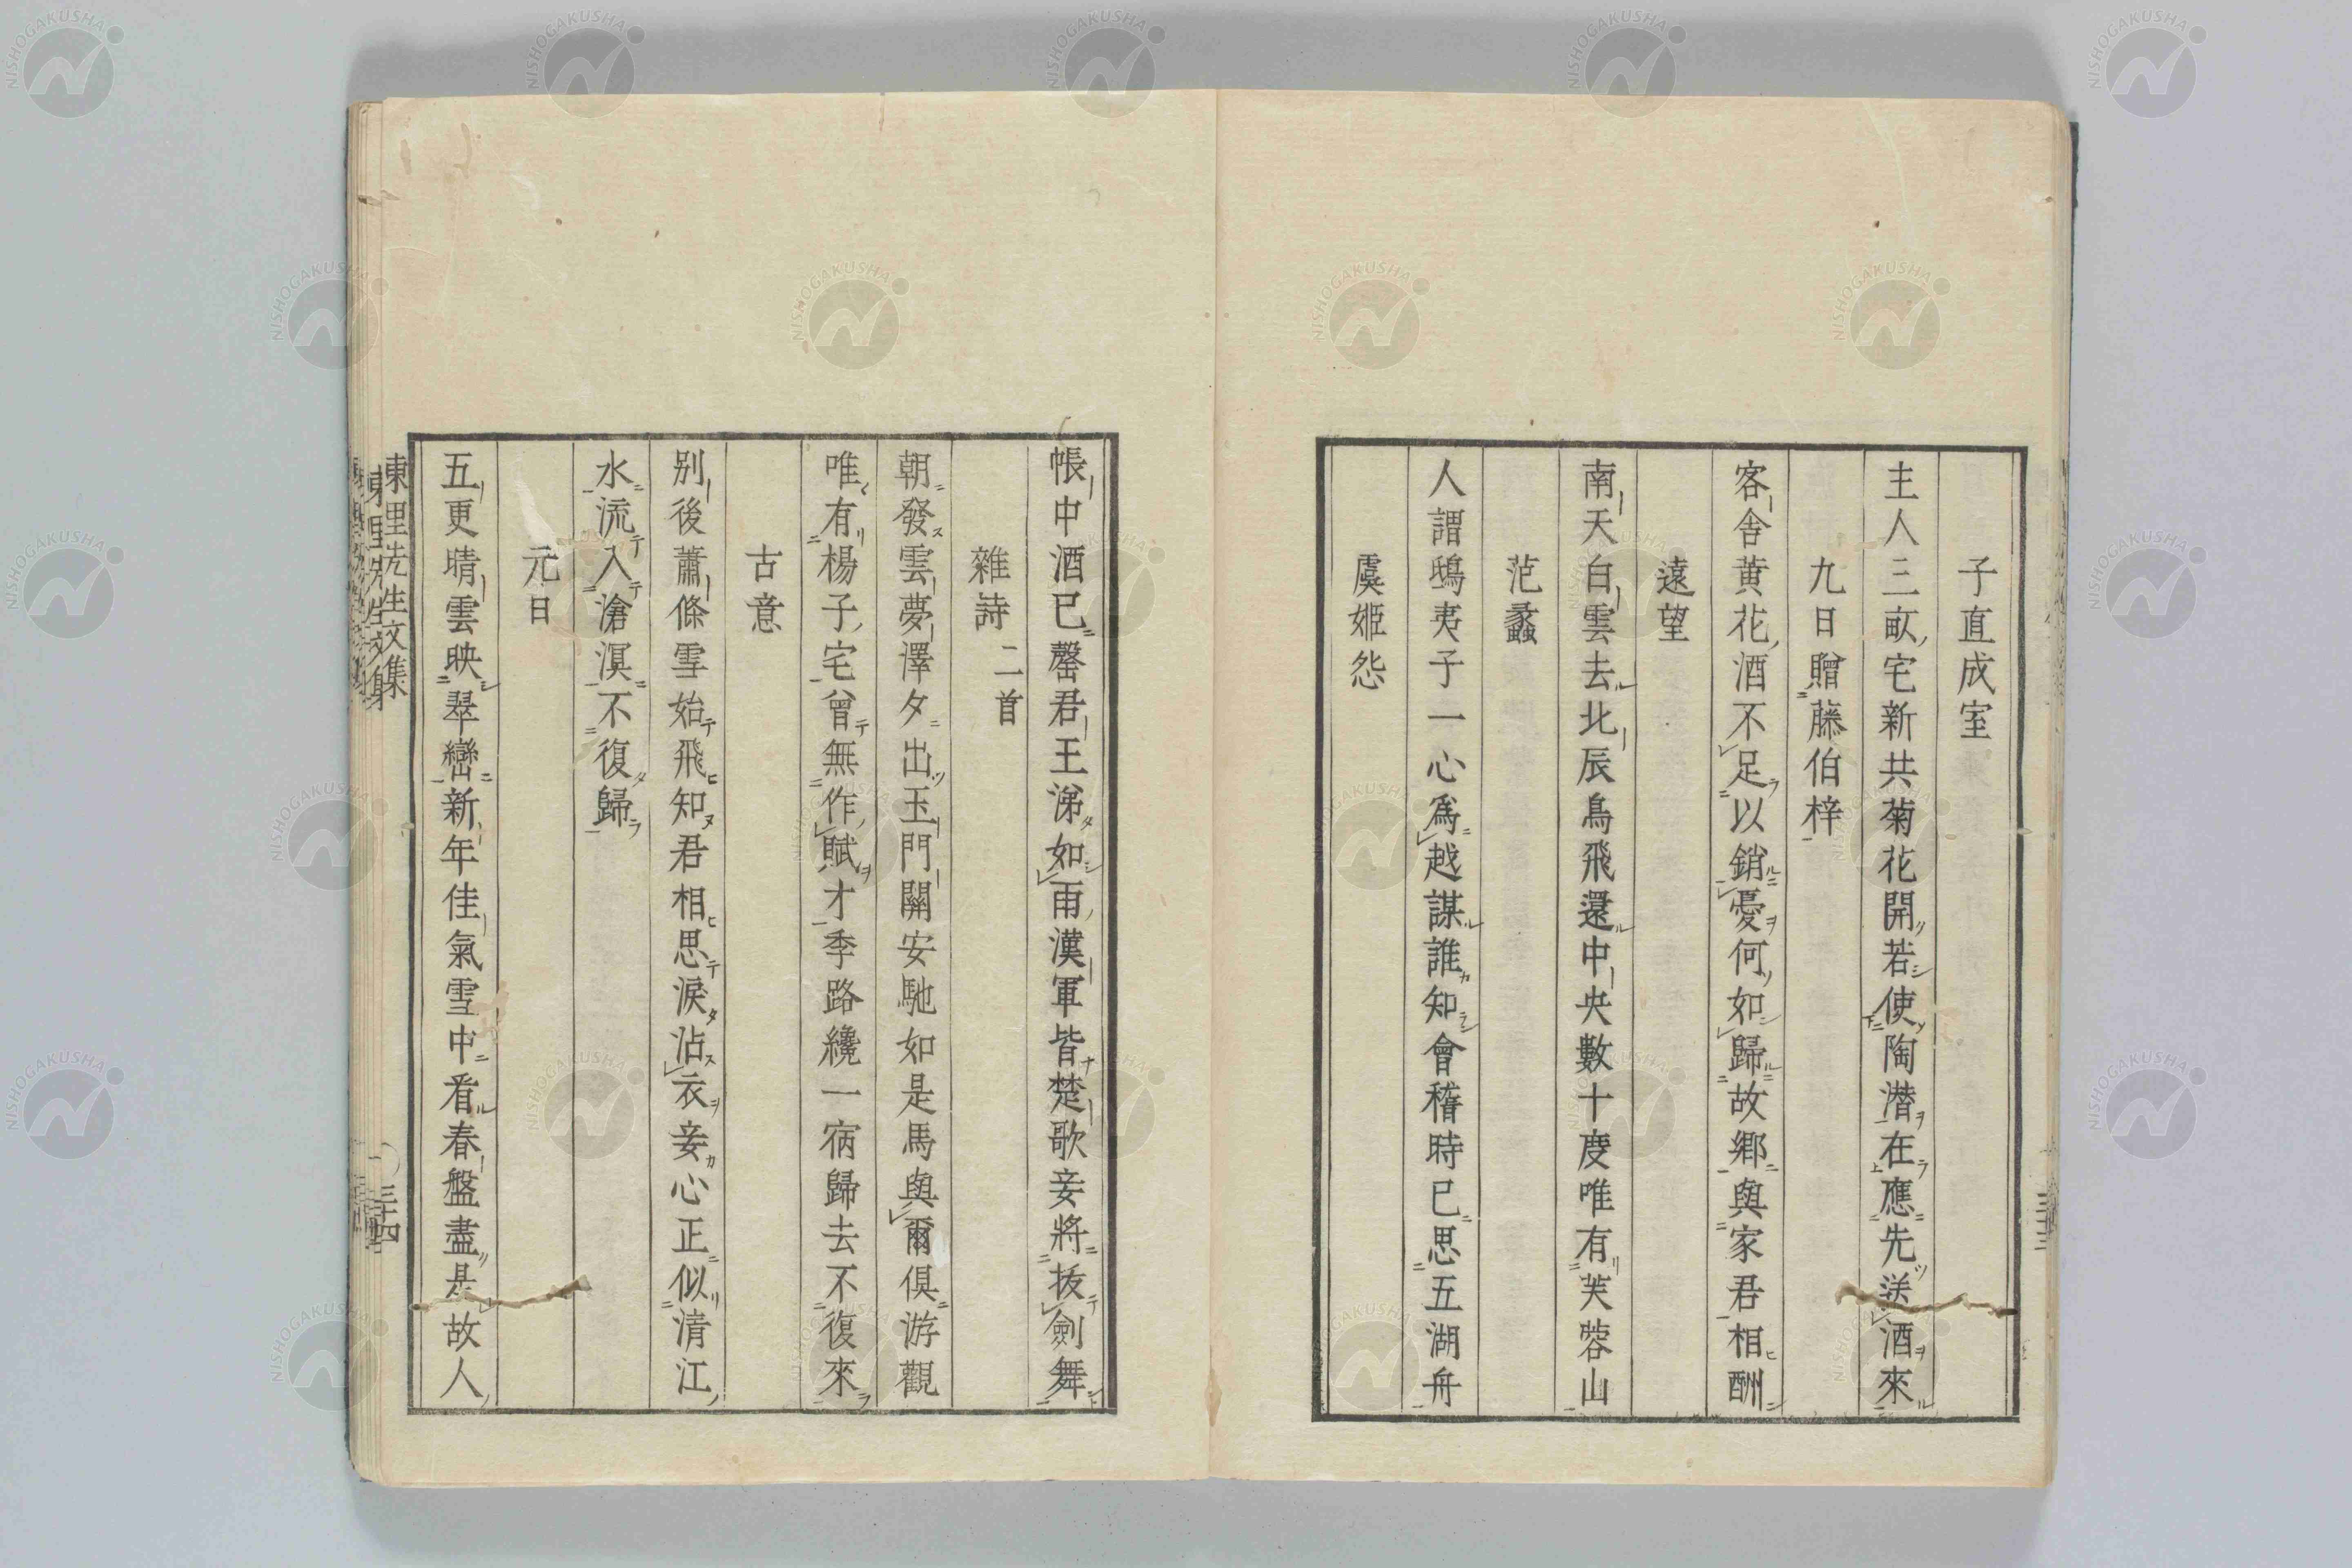 子直成室
主人三畝宅新共菊花開若使陶潛在應先送酒來
九日贈藤伯梓
客舎黄花酒不足以銷憂何如歸故鄉與家君相酬
遠望
南天白雲去北辰鳥飛還中央數十度唯有芙蓉山
范蠡
人謂鴟夷子一心爲越謀誰知會稽時已思五湖舟
虞姬怨
帳中酒已罄君王涕如雨漢軍皆楚歌妾將拔劍舞
雜詩 二首
朝發雲夢澤夕出玉門關安馳如是馬與爾俱游觀
唯有楊子宅曾無作賦才季路纔一宿歸去不復來
古意
別後蕭條雪始飛知君相思淚沾衣妾心正似清江
水流入滄溟不復歸
元日
五更晴雲映翠巒新年佳氣雪中看春盤盡是故人
東里先生文集
三十四
NISHOGAKUSHA